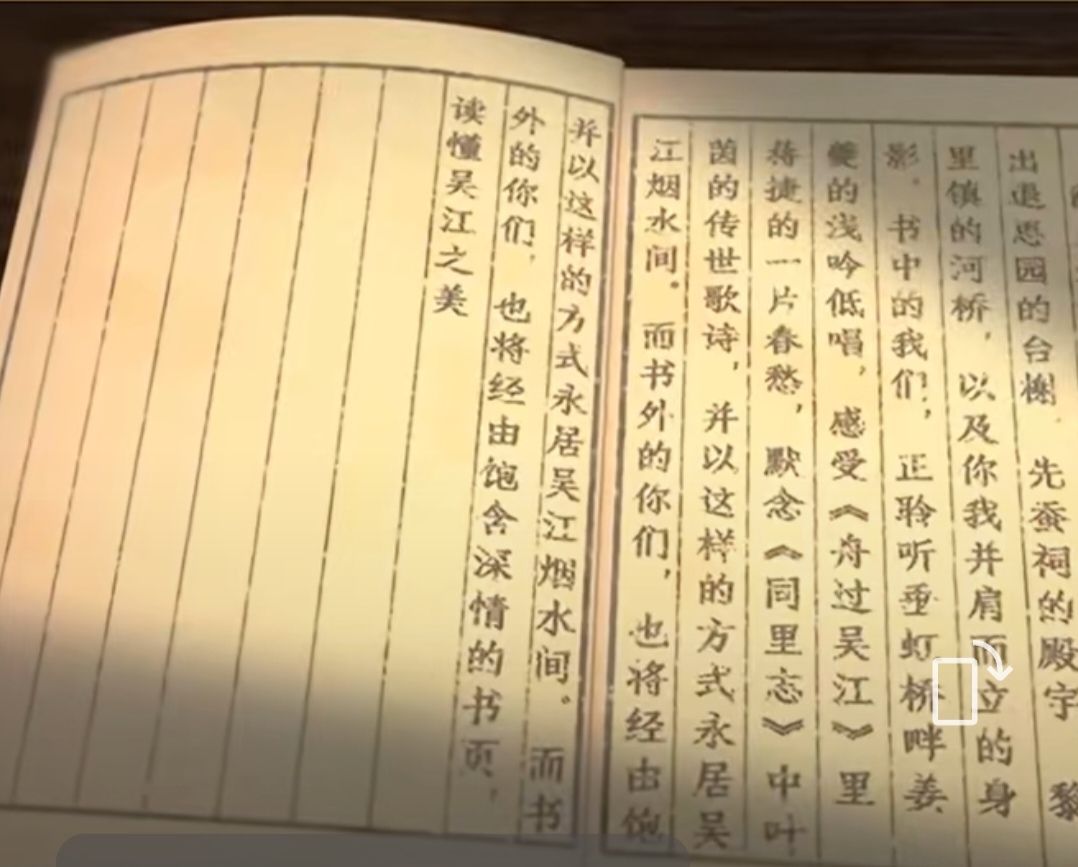 出退思园的台榭、先蚕祠的殿宇、黎
里镇的河桥，以及你我并肩而立的身
影。书中的我们，正聆听垂虹桥畔姜
夔的浅吟低唱，感受《舟过吴江》里
蒋捷的一片春愁，默念《同里志》中叶
茵的传世歌诗，并以这样的方式永居吴
江烟水间。而书外的你们，也将经由饱
并以这样的方式永居吴江烟水间。而书
外的你们，也将经由饱含深情的书页，
读懂吴江之美